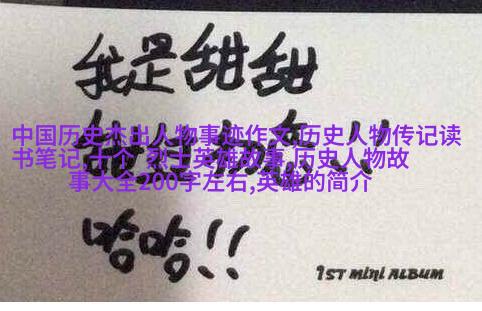 我是甜甜
中国历史杰出人物事迹作文,历史人物传记读
书笔记,十个 烈士英雄故事,历史人物故
事大全200字左右,英雄的简介
哈哈!!
1ST MINI ALBUM